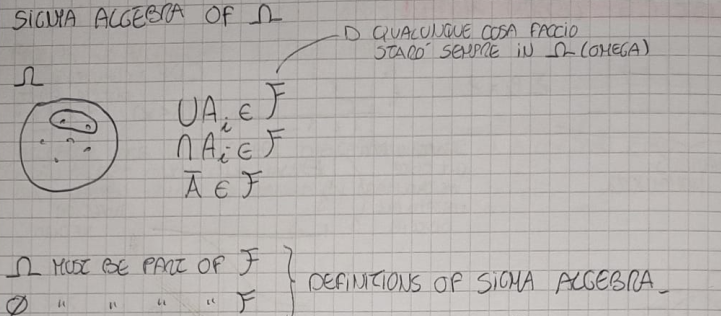 SIGMA ALGEBRA OF Ω
→ QUALUNQUE COSA FACCIO
STARO' SEMPRE IN Ω (OMEGA)
Ω
∪A_i ∈ F
∩A_i ∈ F
Ā ∈ F
Ω MUST BE PART OF F
∅ " " " " F
} DEFINITIONS OF SIGMA ALGEBRA_